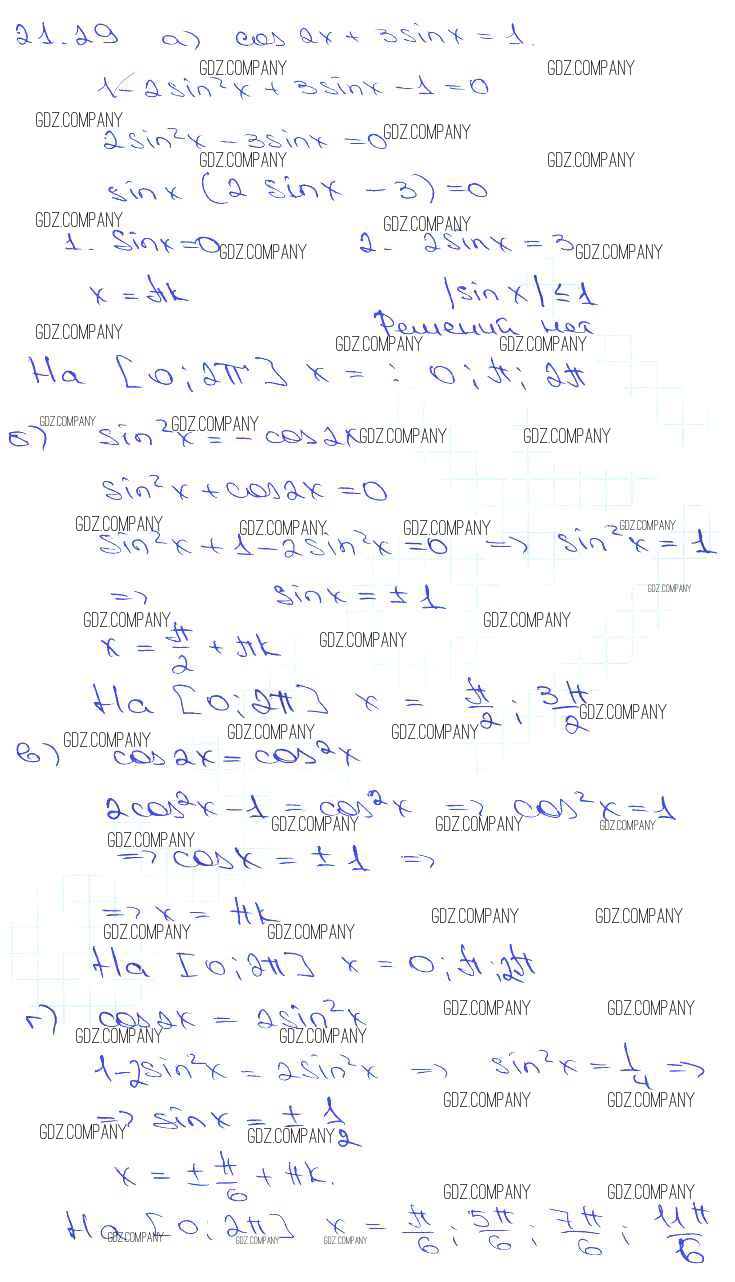 21.29 а) cos 2x + 3sinx = 1.
GDZ.COMPANY GDZ.COMPANY
1 - 2sin²x + 3sinx - 1 = 0
GDZ.COMPANY GDZ.COMPANY
2sin²x - 3sinx = 0
GDZ.COMPANY GDZ.COMPANY
sinx (2 sinx - 3) = 0
GDZ.COMPANY GDZ.COMPANY
1. Sinx = 0 2. 2sinx = 3
GDZ.COMPANY GDZ.COMPANY
x = πk |sin x| ≤ 1
GDZ.COMPANY Решений нет
GDZ.COMPANY GDZ.COMPANY
На [0; 2π] x = : 0; π; 2π
GDZ.COMPANY GDZ.COMPANY GDZ.COMPANY GDZ.COMPANY
б) sin²x = - cos2x
sin²x + cos2x = 0
GDZ.COMPANY GDZ.COMPANY GDZ.COMPANY GDZ.COMPANY
sin²x + 1 - 2sin²x = 0 => sin²x = 1
GDZ.COMPANY
=> sinx = ± 1
GDZ.COMPANY GDZ.COMPANY GDZ.COMPANY
x = π/2 + πk
На [0; 2π] x = π/2; 3π/2
GDZ.COMPANY
GDZ.COMPANY GDZ.COMPANY GDZ.COMPANY
в) cos2x = cos²x
2cos²x - 1 = cos²x => cos²x = 1
GDZ.COMPANY GDZ.COMPANY GDZ.COMPANY
GDZ.COMPANY
=> cosx = ± 1 =>
=> x = πk
GDZ.COMPANY GDZ.COMPANY
GDZ.COMPANY GDZ.COMPANY
На [0; 2π] x = 0; π; 2π
GDZ.COMPANY GDZ.COMPANY
г) cos2x = 2sin²x
GDZ.COMPANY GDZ.COMPANY
1 - 2sin²x = 2sin²x => sin²x = 1/4 =>
GDZ.COMPANY GDZ.COMPANY
=> sinx = ± 1/2
GDZ.COMPANY GDZ.COMPANY
x = ± π/6 + πk.
GDZ.COMPANY GDZ.COMPANY
На [0; 2π] x = π/6; 5π/6; 7π/6; 11π/6
GDZ.COMPANY GDZ.COMPANY GDZ.COMPANY